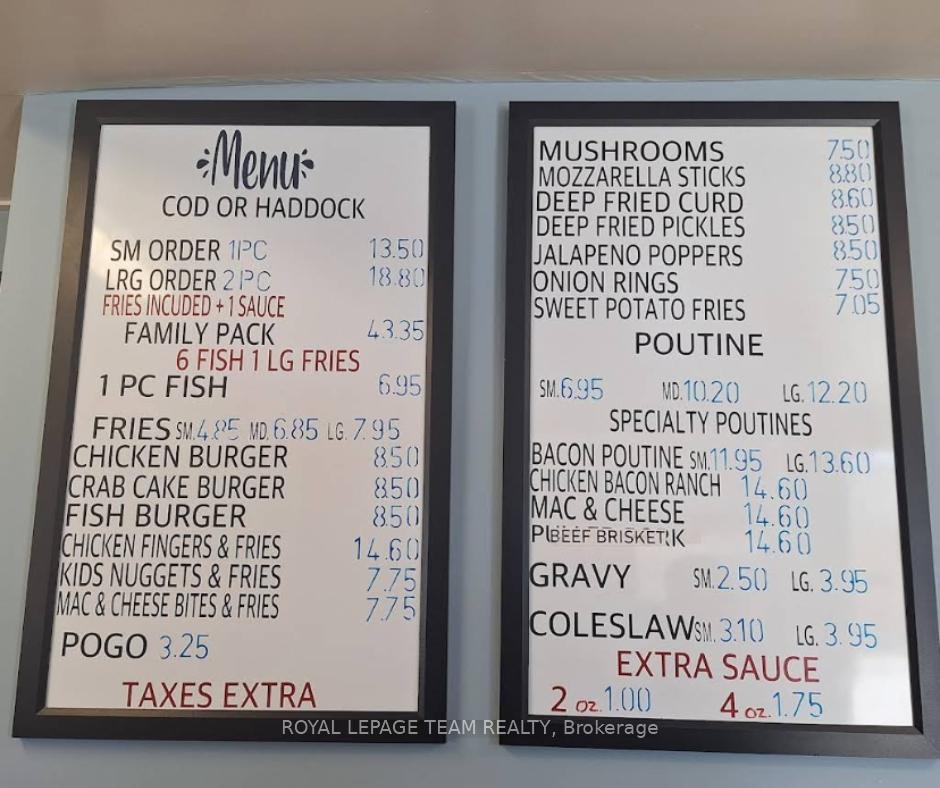 Menu
COD OR HADDOCK
SM ORDER 1PC 13.50
LRG ORDER 2PC 18.80
FRIES INCLUDED + 1 SAUCE
FAMILY PACK 43.35
6 FISH 1 LG FRIES
1 PC FISH 6.95
FRIES SM.4.85 MD.6.85 LG.7.95
CHICKEN BURGER 8.50
CRAB CAKE BURGER 8.50
FISH BURGER 8.50
CHICKEN FINGERS & FRIES 14.60
KIDS NUGGETS & FRIES 7.75
MAC & CHEESE BITES & FRIES 7.75
POGO 3.25
TAXES EXTRA
MUSHROOMS 7.50
MOZZARELLA STICKS 8.80
DEEP FRIED CURD 8.60
DEEP FRIED PICKLES 8.50
JALAPENO POPPERS 8.50
ONION RINGS 7.50
SWEET POTATO FRIES 7.05
POUTINE
SM.6.95 MD.10.20 LG.12.20
SPECIALTY POUTINES
BACON POUTINE SM.11.95 LG.13.60
CHICKEN BACON RANCH 14.60
MAC & CHEESE 14.60
BEEF BRISKET 14.60
GRAVY SM.2.50 LG.3.95
COLESLAW SM.3.10 LG.3.95
EXTRA SAUCE
2 oz.1.00 4 oz.1.75
ROYAL LEPAGE TEAM REALTY, Brokerage